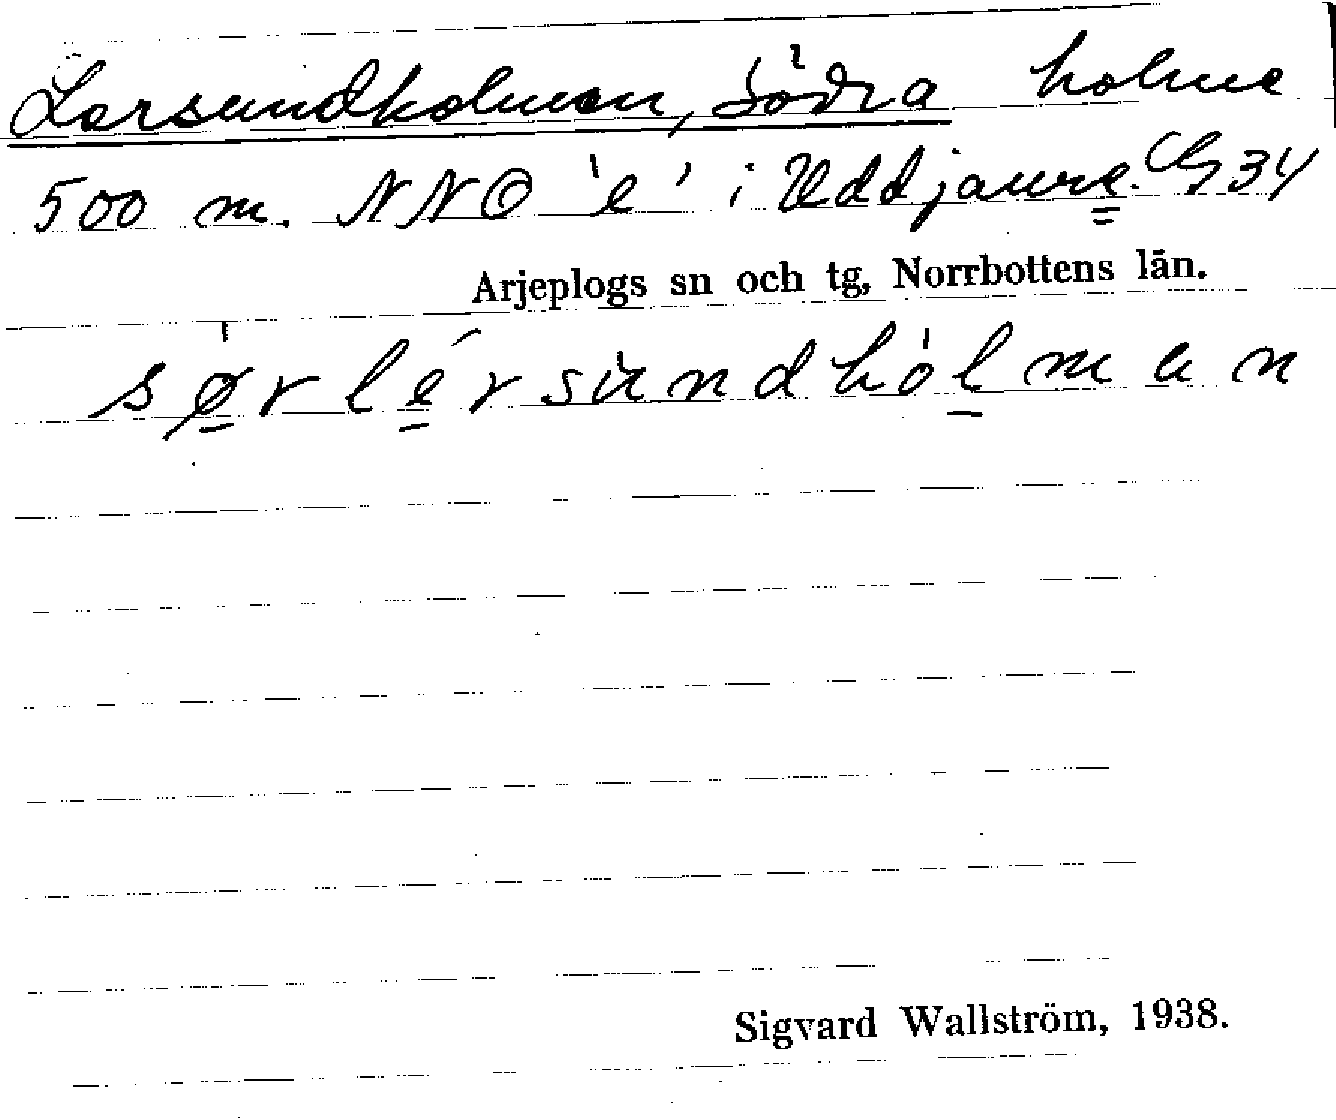 Lorsundholmen, Södra holme
500 m. NNO 'e' i Uddjaure. G34
Arjeplogs sn och tg, Norrbottens län.
sørlérsundhólmen
Sigvard Wallström, 1938.